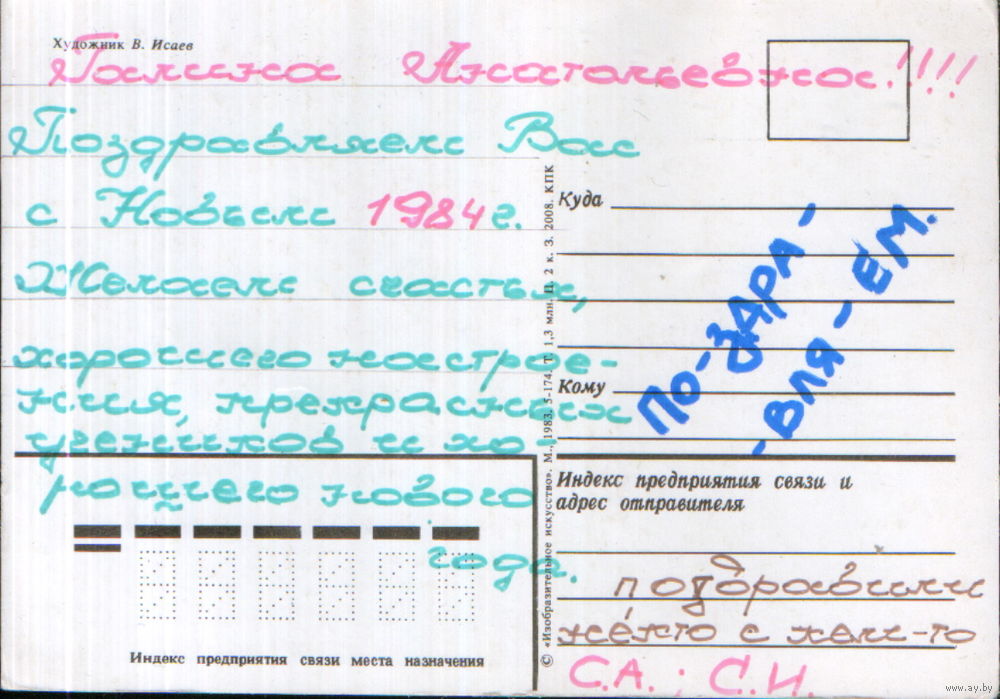 Художник В. Исаев
Галина Анатольевна!!!!
Поздравляем Вас
с Новым 1984 г.
Желаем счастья,
хорошего настрое-
ния, прекрасных
учеников и хо-
рошего нового
года.
Индекс предприятия связи места назначения
© «Изобразительное искусство». М., 1983. 5-174. Т. 1,3 млн. Ц. 2 к. З. 2008. КПК
Куда
Кому
ПО-ЗДРА-
-ВЛЯ-ЕМ.
Индекс предприятия связи и
адрес отправителя
поздравили
некто с кем-то
С.А.; С.И.
www.ay.by